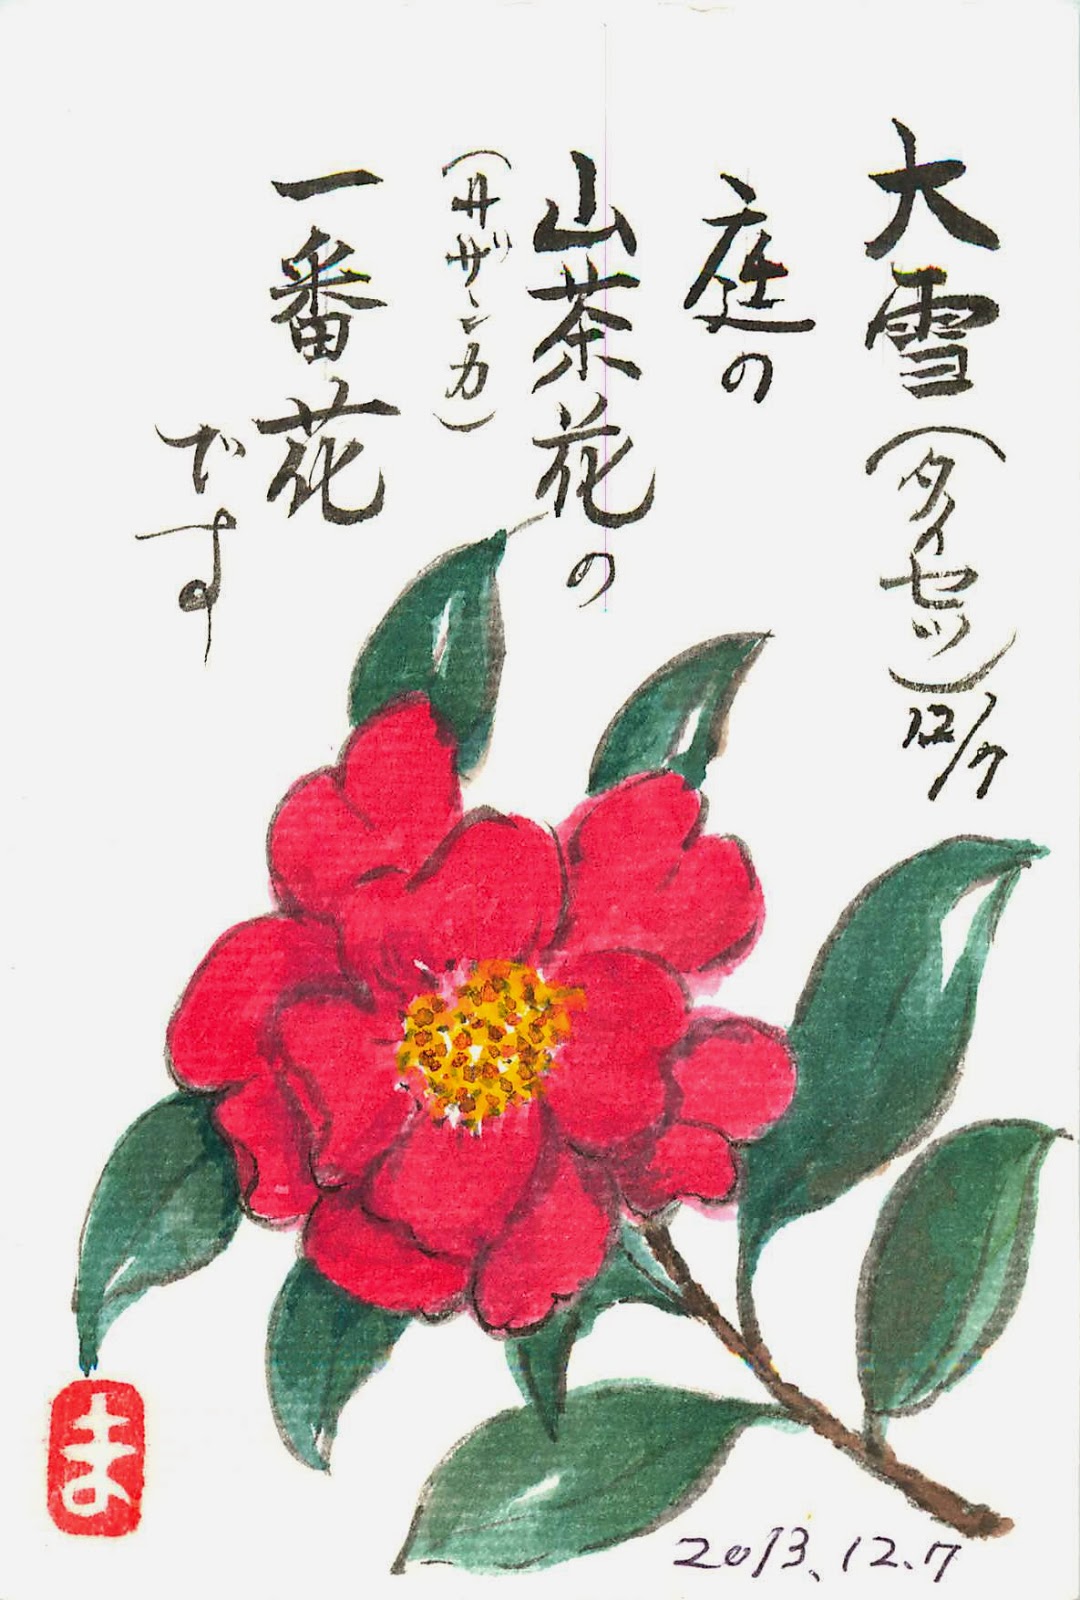 大雪(タイセツ)12/7
庭の
山茶花の
(サザンカ)
一番花
です
ま
2013.12.7